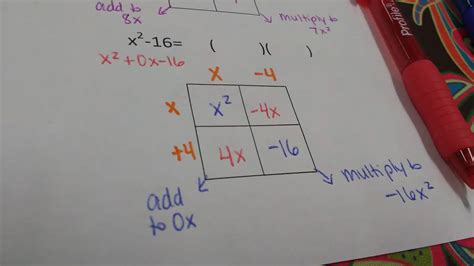 add to
8x
multiply to
7x²
x²-16= ( )( )
x²+0x-16
x -4
x x² -4x
+4 4x -16
add
to 0x
multiply to
-16x²
profile